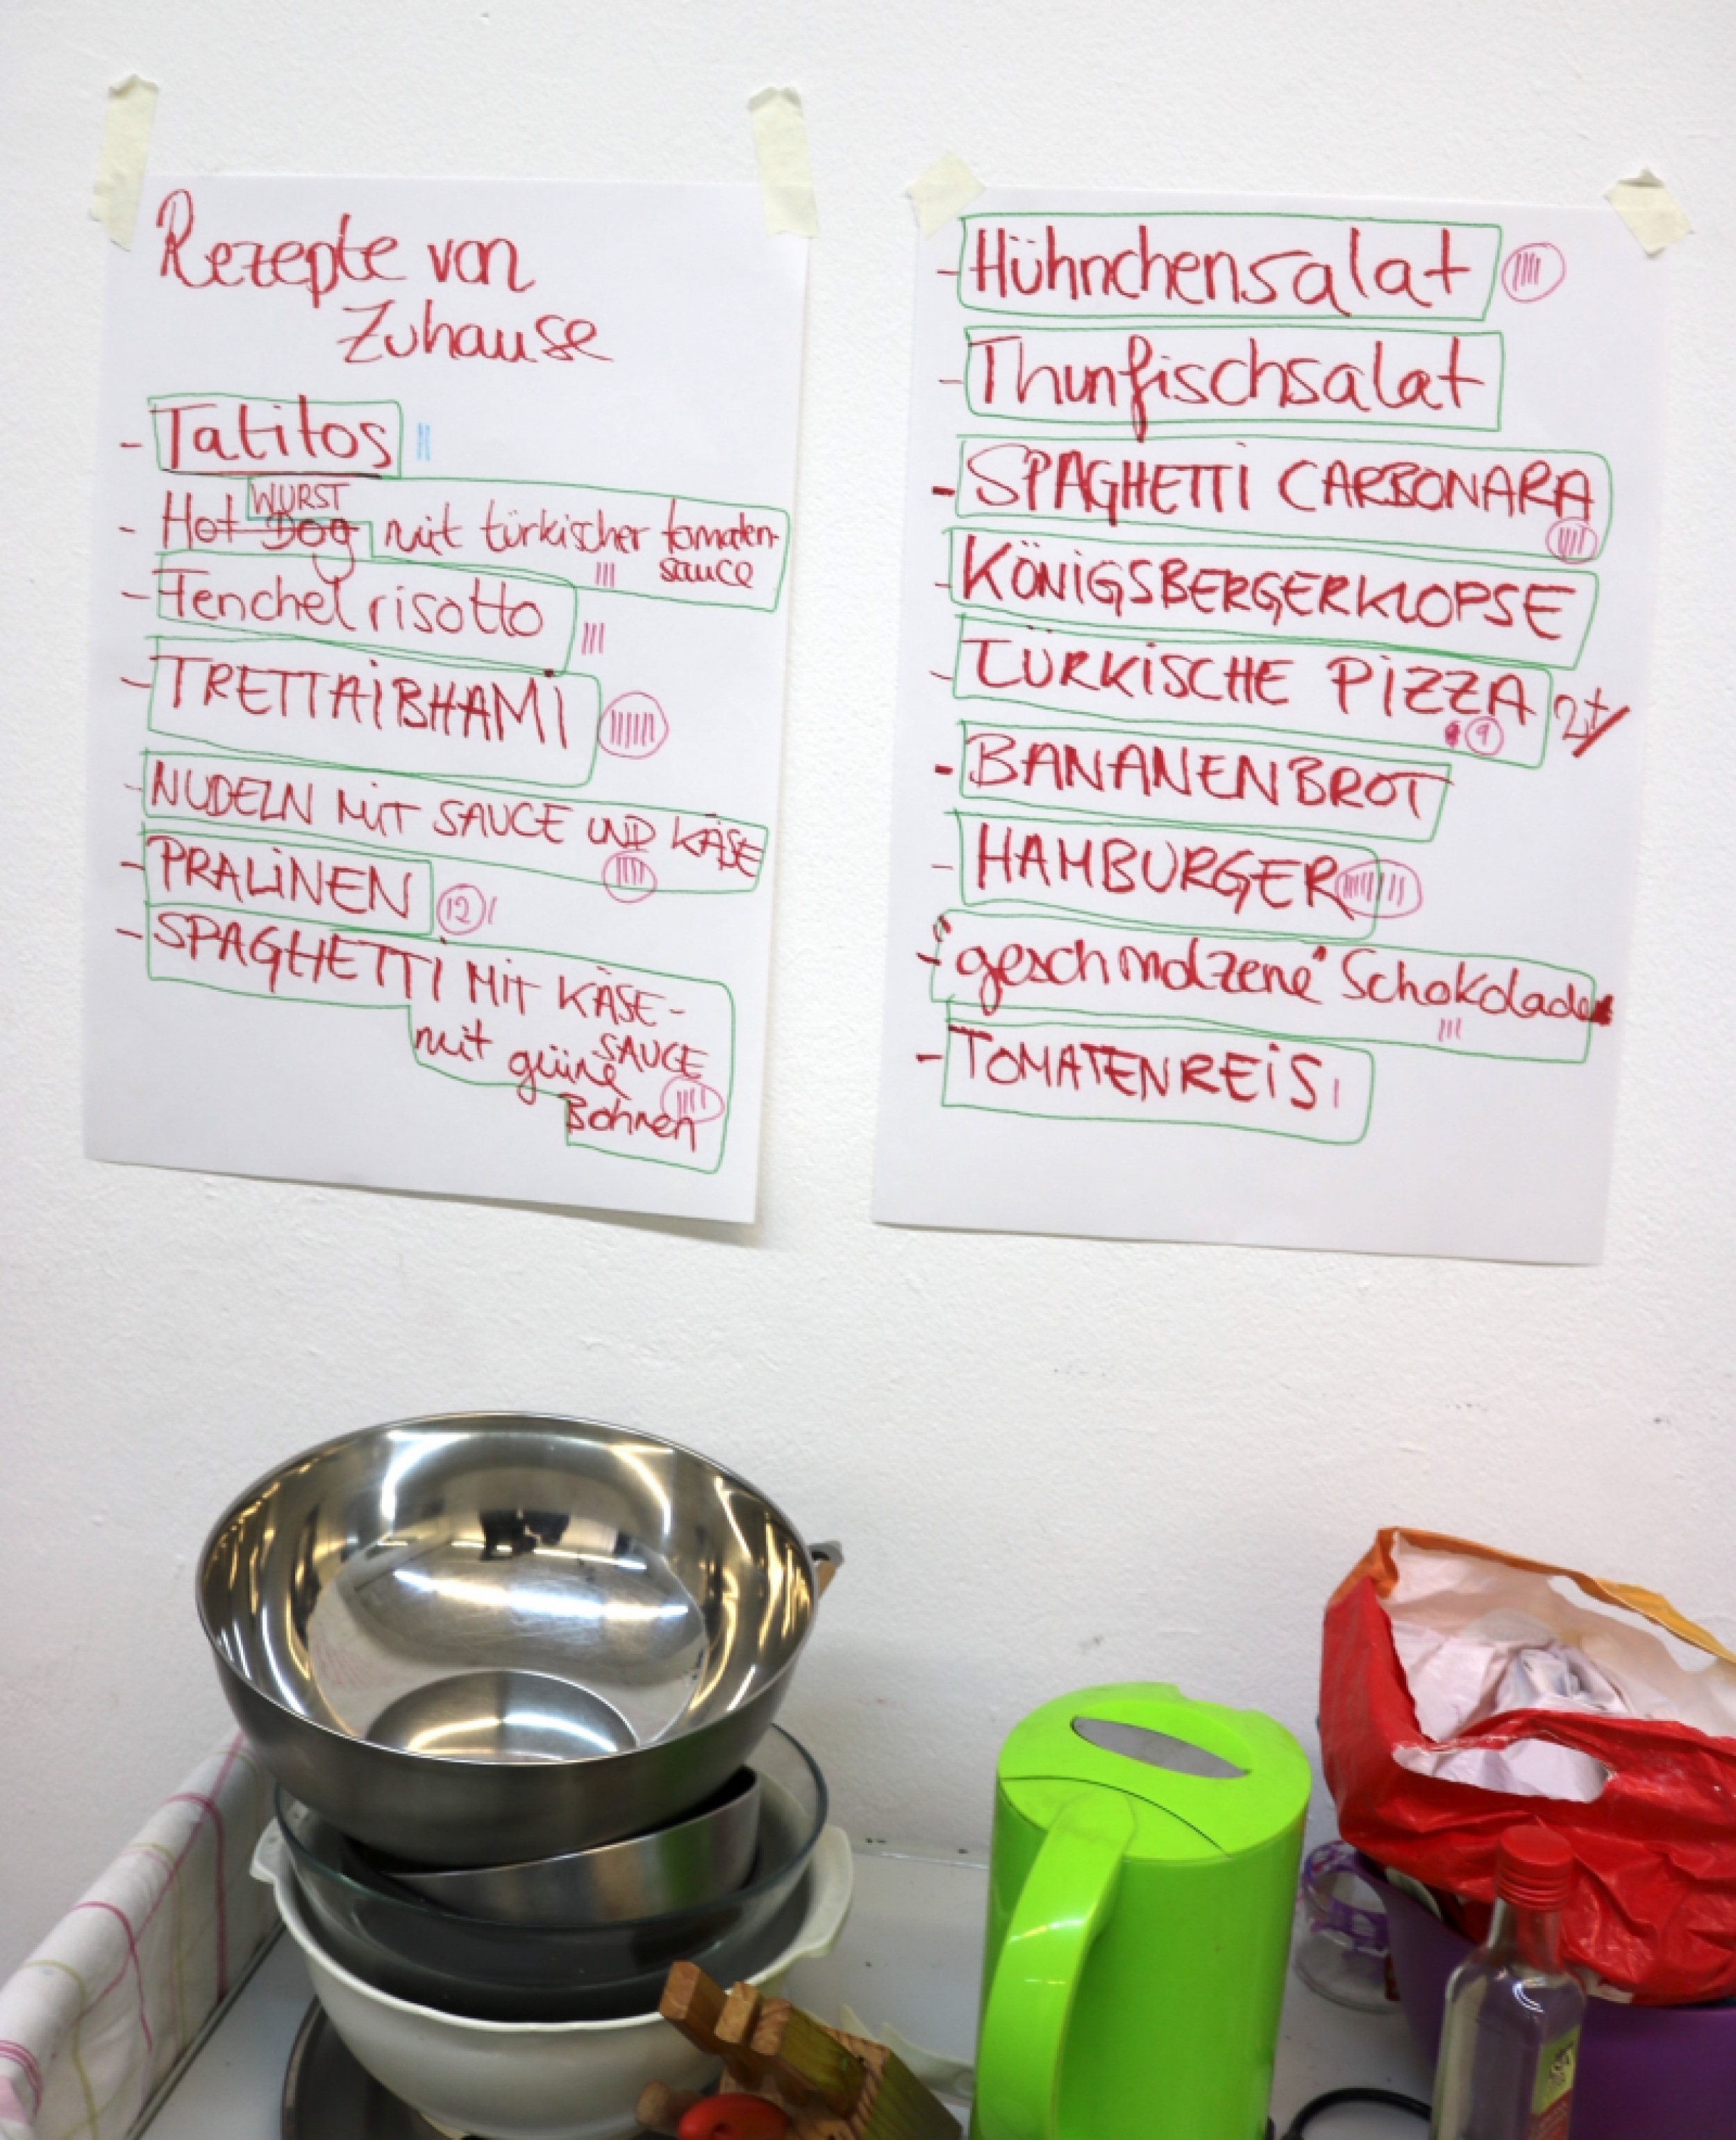 Rezepte von
Zuhause
- Tatitos ||
WURST
- Hot Dog mit türkischer tomaten-
sauce |||
- Fenchelrisotto |||
- TRETTAiBHAMi
- NUDELN MiT SAUCE UND KÄSE
- PRALiNEN 12 |
- SPAGHETTi MiT KÄSE-
SAUCE
mit grüne
Bohnen ||||
- Hühnchensalat
- Thunfischsalat
- SPAGHETTi CARBONARA
- KÖNiGSBERGERKLOPSE
- TÜRKiSCHE PiZZA
9
- BANANENBROT
- HAMBURGER
- "geschmolzene" Schokolade
|||
- TOMATENREiS |